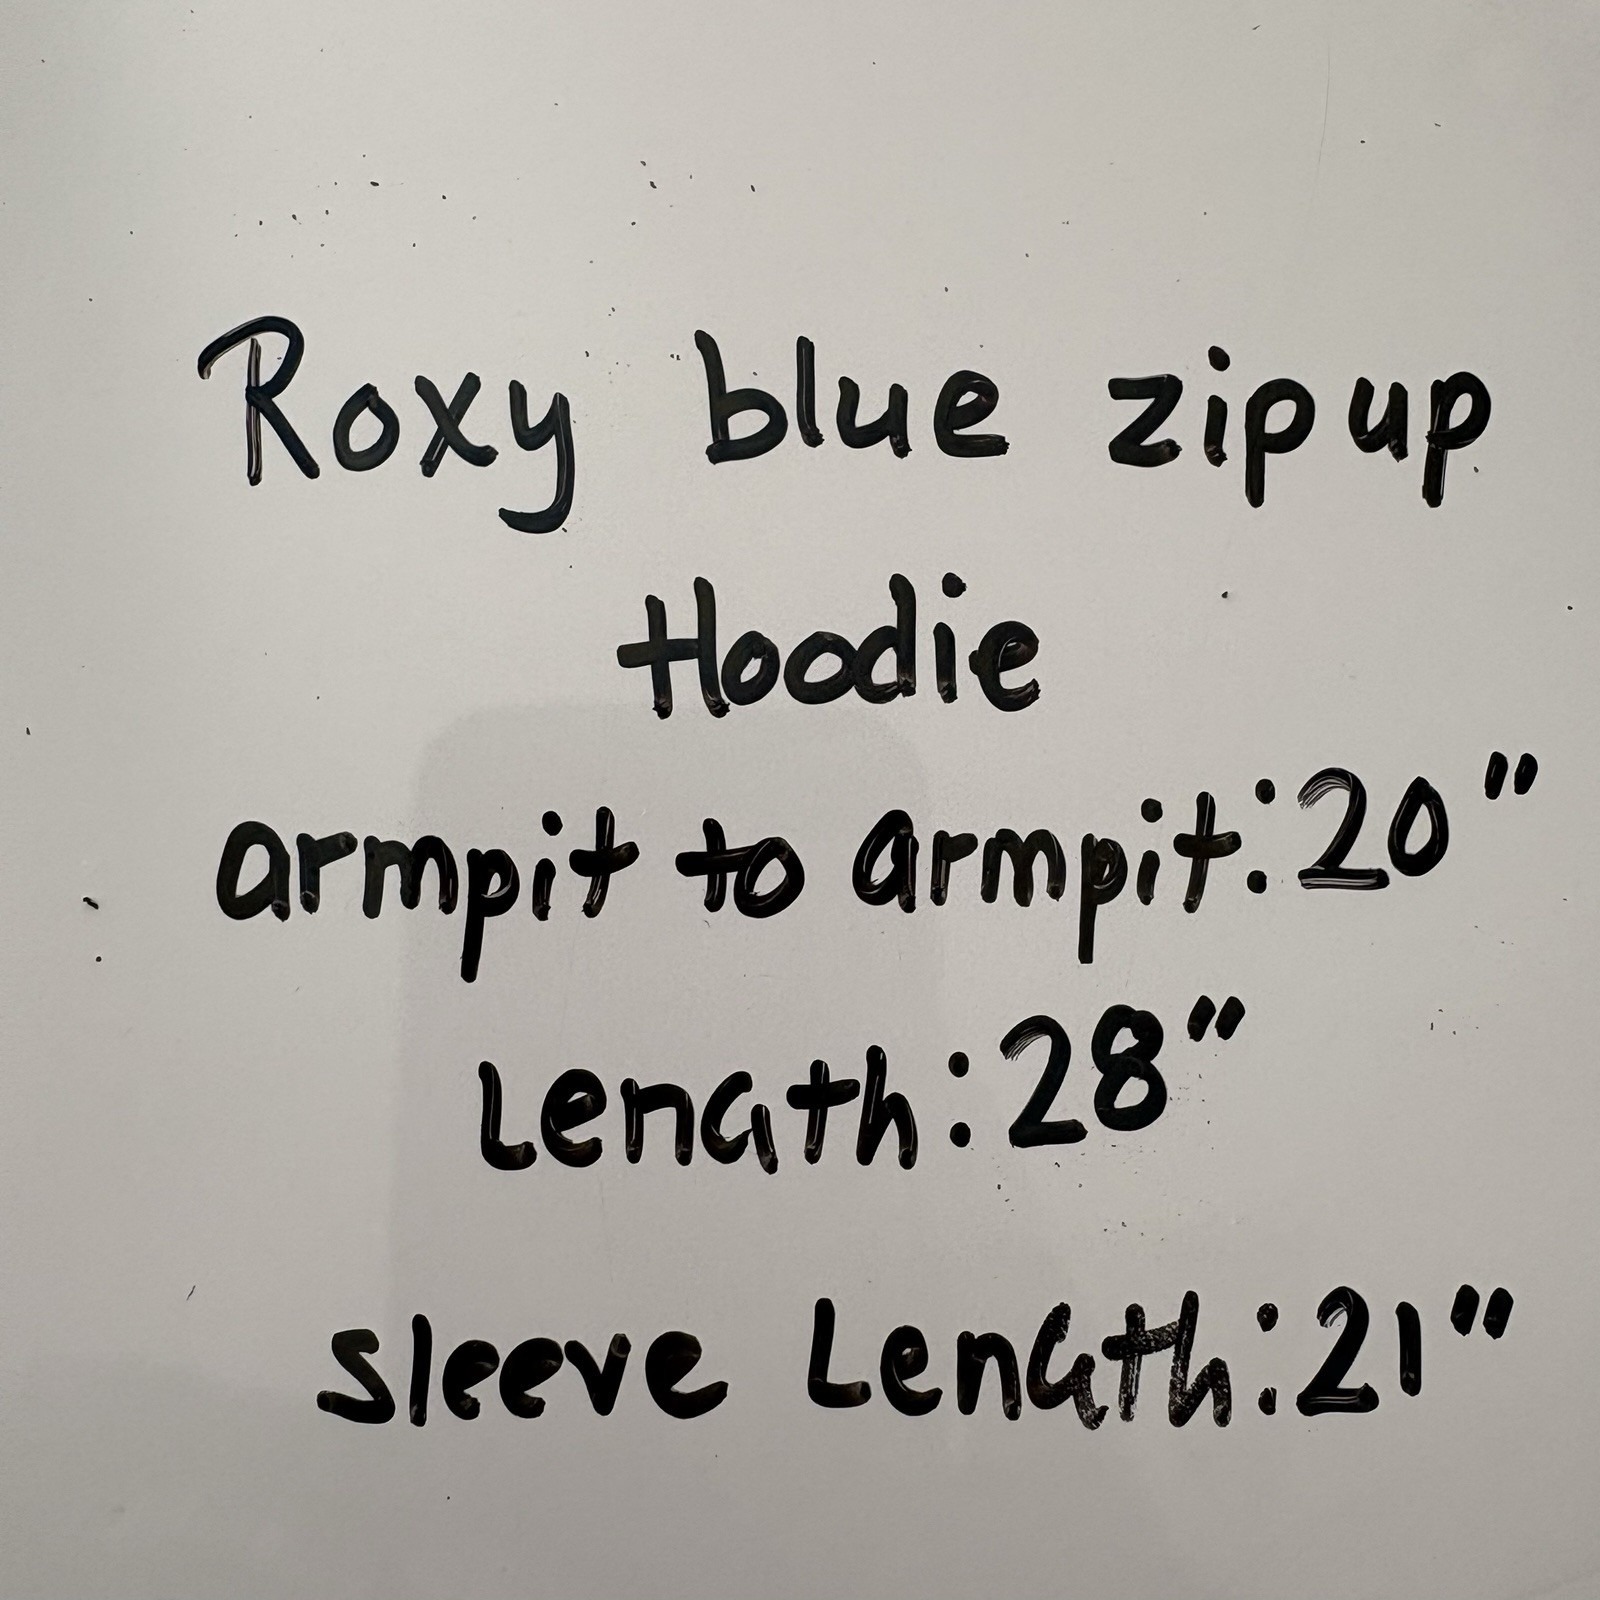 Roxy blue zip up
Hoodie
armpit to armpit:20"
Length:28"
sleeve Length:21"